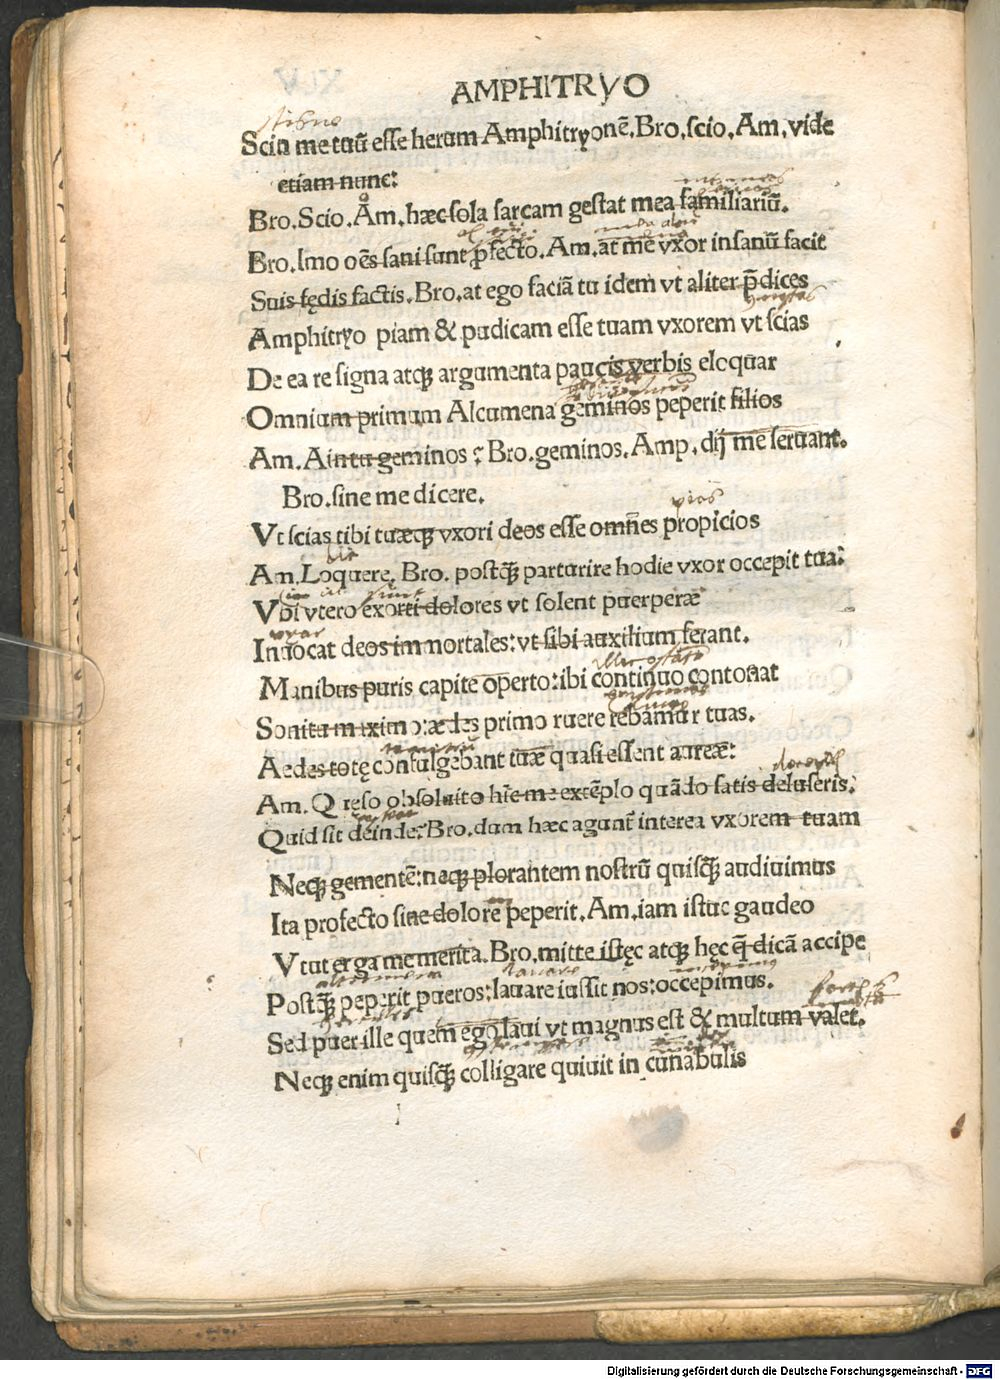 AMPHITRYO
Scin me tuū esse herum Amphitryonē. Bro. scio. Am. vide
etiam nunc:
Bro. Scio. Am. hæc sola sarcam gestat mea familiariū.
Bro. Imo oēs sani sunt ꝓfecto. Am. at me vxor insanū facit
Suis fędis factis. Bro. at ego faciā tu idem vt aliter p̄dices
Amphitryo piam & pudicam esse tuam vxorem vt scias
De ea re signa atqꝫ argumenta paucis verbis eloquar
Omnium primum Alcumena geminos peperit filios
Am. Ain tu geminos ? Bro. geminos. Amp. dij me seruant.
Bro. sine me dicere.
Vt scias tibi tuæqꝫ vxori deos esse omnes propicios
Am. Loquere. Bro. postqꝫ̄ parturire hodie vxor occepit tua:
Vbi vtero exorti dolores vt solent puerperæ
Inuocat deos immortales: vt sibi auxilium ferant.
Manibus puris capite operto: ibi continuo contonat
Sonitu maximo: ædes primo ruere rebamur tuas.
Aedes totę confulgebant tuæ quasi essent aureæ:
Am. Quęso obsoluito hīc me extēplo quādo satis deluseris:
Quid sit deinde? Bro. dum hæc agunt̄ interea vxorem tuam
Neqꝫ gementē: neqꝫ plorantem nostrū quisqꝫ̄ audiuimus
Ita profecto sine dolore peperit. Am. iam istuc gaudeo
Vtut erga me merita. Bro. mitte istęc atqꝫ hęc q̄ dicā accipe
Postqꝫ̄ peperit pueros: lauare iussit nos: occepimus.
Sed puer ille quem ego laui vt magnus est & multum valet.
Neqꝫ enim quisqꝫ̄ colligare quiuit in cunabulis
Digitalisierung gefördert durch die Deutsche Forschungsgemeinschaft - DFG